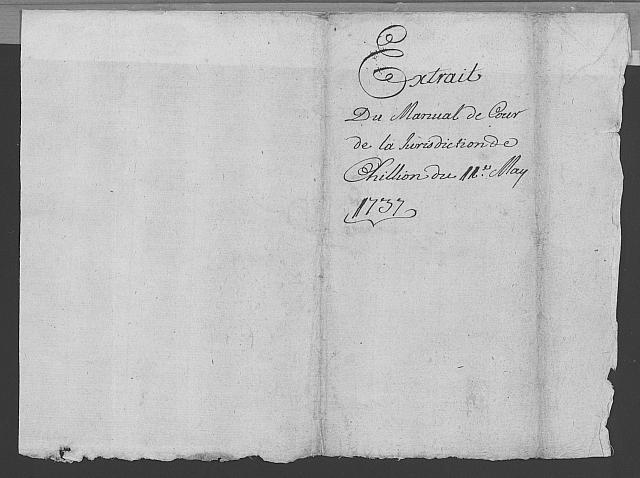 Extrait
Du Manual de Cour
de la Jurisdiction de
Chillion du 11.e May
1737